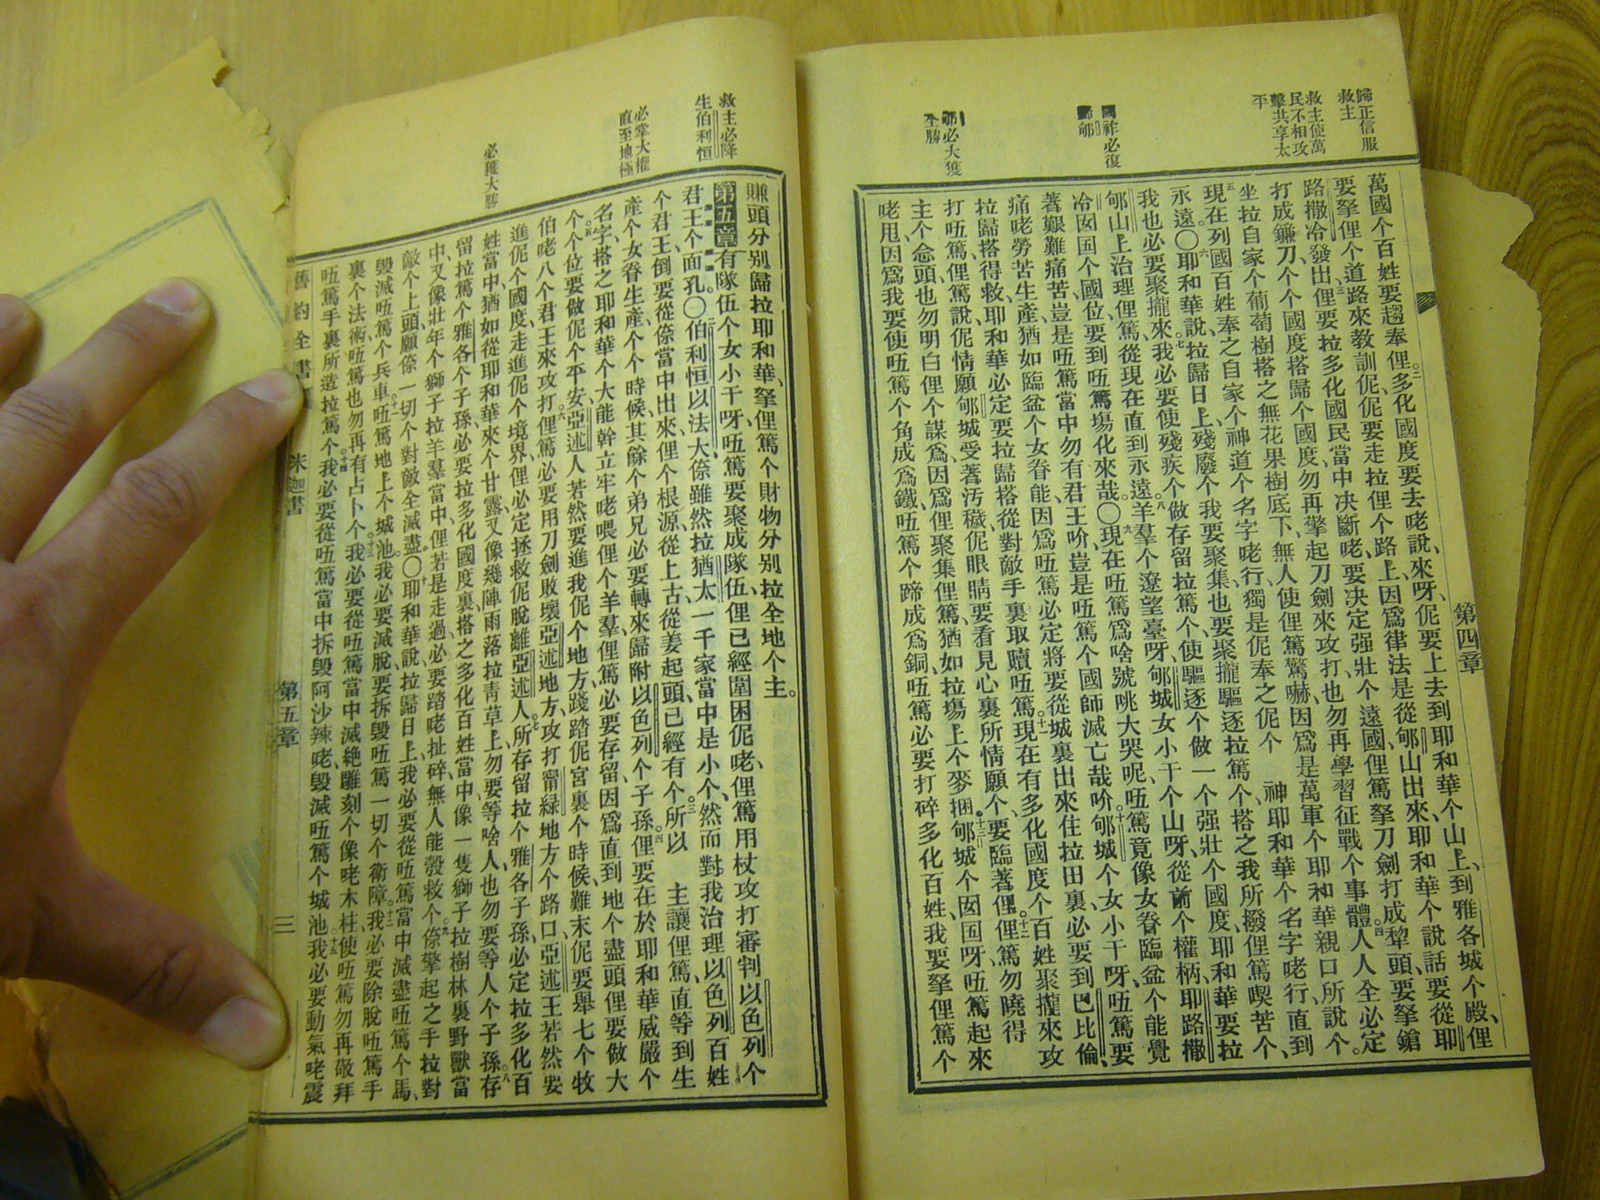 歸正信服
救主
救主使萬
民不相攻
擊共享太
平
國祚必復
歸郇
郇必大獲
全勝
第四章
萬國个百姓要趨奉俚多化國度要去咾說來呀伲要上去到耶和華个山上到雅各城个殿俚
要拏俚个道路來教訓伲伲要走拉俚个路上因爲律法是從郇山出來耶和華个說話要從耶
路撒冷發出俚要拉多化國民當中决斷咾要决定强壯个遠國俚篤拏刀劍打成犂頭要拏鎗
打成鐮刀个个國度搭歸个國度勿再擎起刀劍來攻打也勿再學習征戰个事體人人全必定
坐拉自家个葡萄樹搭之無花果樹底下無人使俚篤驚嚇因爲是萬軍个耶和華親口所說个
現在列國百姓奉之自家个神道个名字咾行獨是伲奉之伲个 神耶和華个名字咾行直到
永遠〇耶和華說拉歸日上殘廢个我要聚集也要聚攏驅逐拉篤个搭之我所撥俚篤喫苦个
我也必要聚攏來我必要使殘疾个做存留拉篤个使驅逐个做一个强壯个國度耶和華要拉
郇山上治理俚篤從現在直到永遠羊羣个遼望臺呀郇城女小干个山呀從前个權柄耶路撒
冷囡囯个國位要到㕶篤塲化來哉〇現在㕶篤爲啥號咷大哭呢㕶篤竟像女眷臨盆个能覺
著艱難痛苦豈是㕶篤當中勿有君王吤豈是㕶篤个國師滅亡哉吤郇城个女小干呀㕶篤要
痛咾勞苦生產猶如臨盆个女眷能因爲㕶篤必定將要從城裏出來住拉田裏必要到巴比倫
拉歸搭得救耶和華必定要拉歸搭從對敵手裏取贖㕶篤現在有多化國度个百姓聚攏來攻
打㕶篤俚篤說伲情願郇城受著汚穢伲眼睛要看見心裏所情願个要臨著俚俚篤勿曉得
主个念頭也勿明白俚个謀爲因爲俚聚集俚篤猶如拉塲上个麥捆郇城个囡囯呀㕶篤起來
咾甩因爲我要使㕶篤个角成爲鐵㕶篤个蹄成爲銅㕶篤必要打碎多化百姓我要拏俚篤个
救主必降
生伯利恒
必掌大權
直至地極
必獲大勝
賺頭分别歸拉耶和華拏俚篤个財物分别拉全地个主
第五章有隊伍个女小干呀㕶篤要聚成隊伍俚已經圍困伲咾俚篤用杖攻打審判以色列个
君王个面孔〇伯利恒以法大倷雖然拉猶太一千家當中是小个然而對我治理以色列百姓
个君王倒要從倷當中出來俚个根源從上古從姜起頭已經有个所以 主讓俚篤直等到生
產个女眷生產个个時候其餘个弟兄必要轉來歸附以色列个子孫俚要在於耶和華威嚴个
名字搭之耶和華个大能幹立牢咾喂俚个羊羣俚篤必要存留因爲直到地个盡頭俚要做大
个个位要做伲个平安亞述人若然要進我伲个地方踐踏伲宮裏个時候難末伲要舉七个牧
伯咾八个君王來攻打俚篤必要用刀劍敗壞亞述地方攻打甯綠地方个路口亞述王若然要
進伲个國度走進伲个境界俚必定拯救伲脫離亞述人所存留拉个雅各子孫必定拉多化百
姓當中猶如從耶和華來个甘露又像幾陣雨落拉靑草上勿要等啥人也勿要等人个子孫存
留拉篤个雅各个子孫必要拉多化國度裏搭之多化百姓當中像一隻獅子拉樹林裏野獸當
中又像壯年个獅子拉羊羣當中俚若是走過必要踏咾扯碎無人能彀救个倷擎起之手拉對
敵个上頭願倷一切个對敵全滅盡〇耶和華說拉歸日上我必要從㕶篤當中滅盡㕶篤个馬
毀滅㕶篤个兵車㕶篤地上个城池我必要滅脫要拆毀㕶篤一切个衛障我必要除脫㕶篤手
裏个法術㕶篤也勿再有占卜个我必要從㕶篤當中滅絶雕刻个像咾木柱使㕶篤勿再敬拜
㕶篤手裏所造拉篤个我必要從㕶篤當中拆毀阿沙辣咾毀滅㕶篤个城池我必要動氣咾震
舊約全書 米迦書 第五章 三